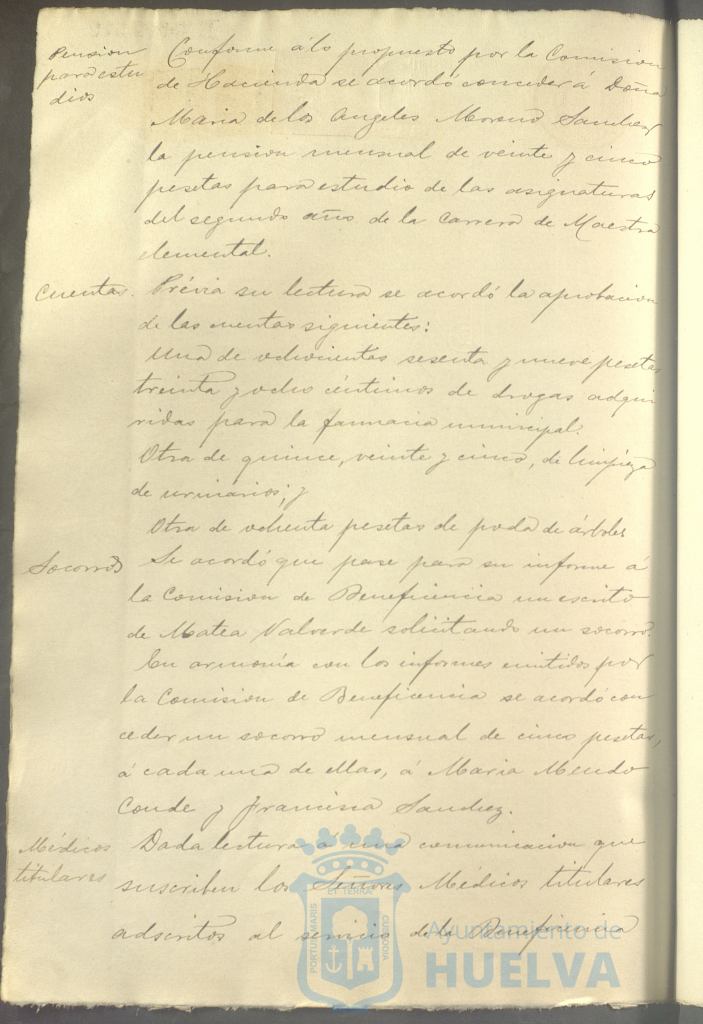 Pension
para estu
dios
Conforme á lo propuesto por la Comision
de Hacienda se acordó conceder á Doña
Maria de los Angeles Moreno Sanchez
la pension mensual de veinte y cinco
pesetas para estudio de las asignaturas
del segundo año de la carrera de Maestra
elemental.
Cuentas. Prévia su lectura se acordó la aprobacion
de las cuentas siguientes:
Una de ochocientas sesenta y nueve pesetas
treinta y ocho céntimos de drogas adqui
ridas para la farmacia municipal.
Otra de quince, veinte y cinco, de limpieza
de urinarios; y
Otra de ochenta pesetas de poda de árboles
Socorros Se acordó que pase para su informe á
la Comision de Beneficencia un escrito
de Matea Valverde solicitando un socorro.
En armonía con los informes emitidos por
la Comision de Beneficencia se acordó con
ceder un socorro mensual de cinco pesetas,
á cada una de ellas, á Maria Mendo
Conde y Francisca Sanchez.
Médicos
titulares
Dada lectura a una comunicacion que
suscriben los Señores Médicos titulares
adscritos al servicio de la Beneficencia
PORTUS MARIS
ET TERRÆ
CUSTODIA
Ayuntamiento de
HUELVA